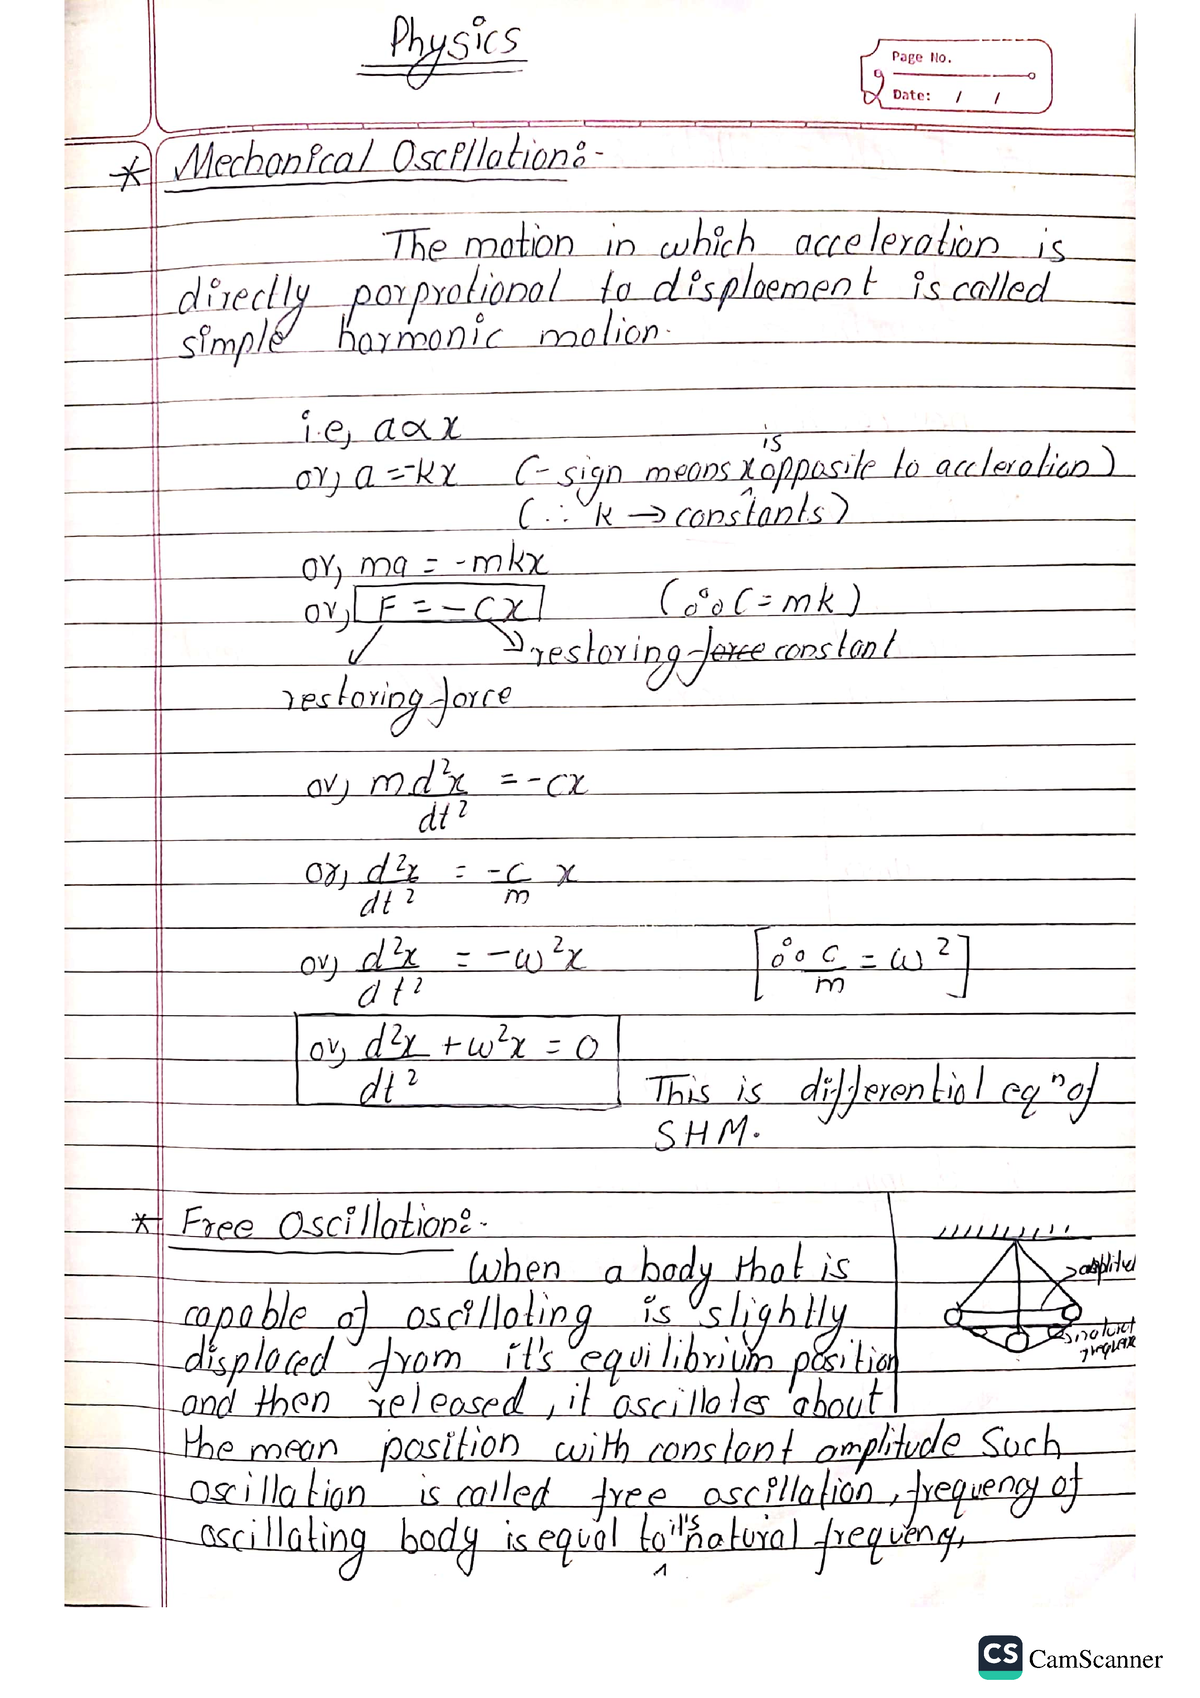 Physics
Page No.
Date: / /
* Mechanical Oscillation:-
The motion in which acceleration is
directly porprotional to displaement is called
simple harmonic motion.
i.e, a∝x
or, a =-kx (- sign means x is opposite to accleration)
(∴ k → constants)
or, ma = -mkx
or, F = -cx (∵ C = mk)
restoring force constant
restoring force
or, md²x/dt² = -cx
or, d²x/dt² = -c/m x
or, d²x/dt² = -ω²x [∵ c/m = ω²]
or, d²x/dt² + ω²x = 0
This is differential eqⁿ of
SHM.
* Free Oscillation:-
When a body that is
capable of oscillating is slightly
displaced from it's equilibrium position
and then released, it oscillates about
the mean position with constant amplitude Such
oscillation is called free oscillation, frequency of
oscillating body is equal to it's natural frequency.
CS CamScanner